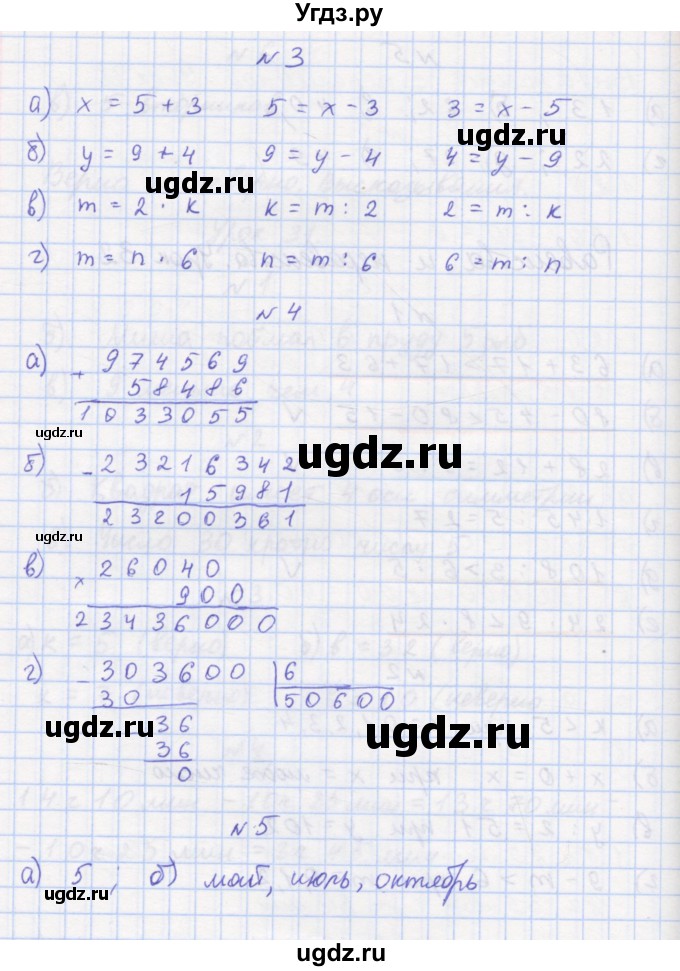 Угдз.ру
N 3
а) x = 5 + 3 5 = x - 3 3 = x - 5
ugdz.ru
б) y = 9 + 4 9 = y - 4 4 = y - 9
ugdz.ru
в) m = 2 · k k = m : 2 2 = m : k
г) m = n · 6 n = m : 6 6 = m : n
N 4
ugdz.ru
а) + 974569
58486
1033055
ugdz.ru
б) - 23216342
15981
23200361
ugdz.ru
в) × 26040
900
23436000
г) - 303600 6
30 50600
ugdz.ru 36 ugdz.ru
36
0
N 5
а) 5; б) май, июль, октябрь
ugdz.ru
ugdz.ru